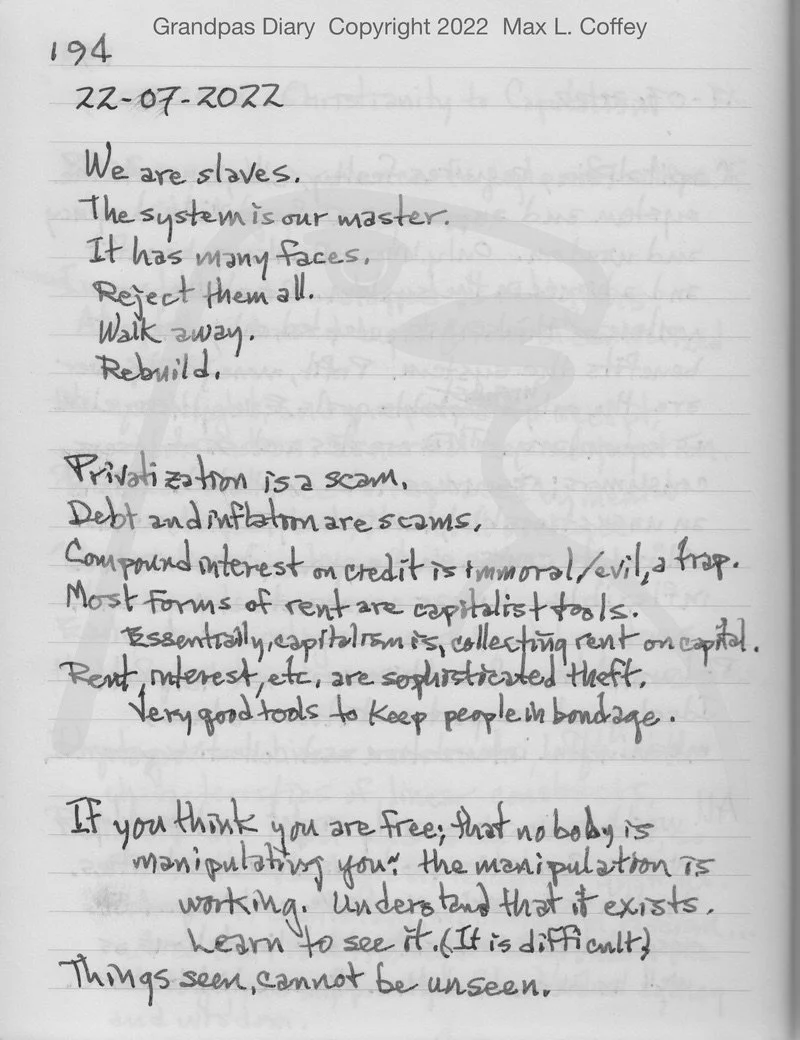 Grandpas Diary Copyright 2022 Max L. Coffey
194
22-07-2022
We are slaves.
The system is our master.
It has many faces.
Reject them all.
Walk away.
Rebuild.
Privatization is a scam.
Debt and inflation are scams.
Compound interest on credit is immoral/evil, a trap.
Most forms of rent are capitalist tools.
Essentially, capitalism is, collecting rent on capital.
Rent, interest, etc. are sophisticated theft.
Very good tools to keep people in bondage.
If you think you are free; that nobody is
manipulating you: the manipulation is
working. Understand that it exists.
Learn to see it. (It is difficult)
Things seen, cannot be unseen.